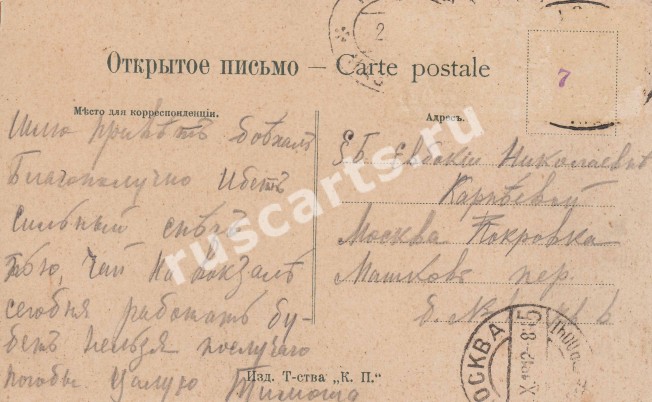 Открытое письмо — Carte postale
7
Мѣсто для корреспонденціи.
Адресъ.
Шлю привѣтъ
Благополучно Идетъ
сильный снѣгъ
пью чай на вокзалѣ
сегодня работать бу-
детъ нельзя послучаю
погоды Цалую Тимоша
Е В Евдокіи Николаевнѣ
Карпѣевой
Москва Покровка
Машковъ пер.
Изд. Т-ства „К. П.“
МОСКВА
ruscarts.ru